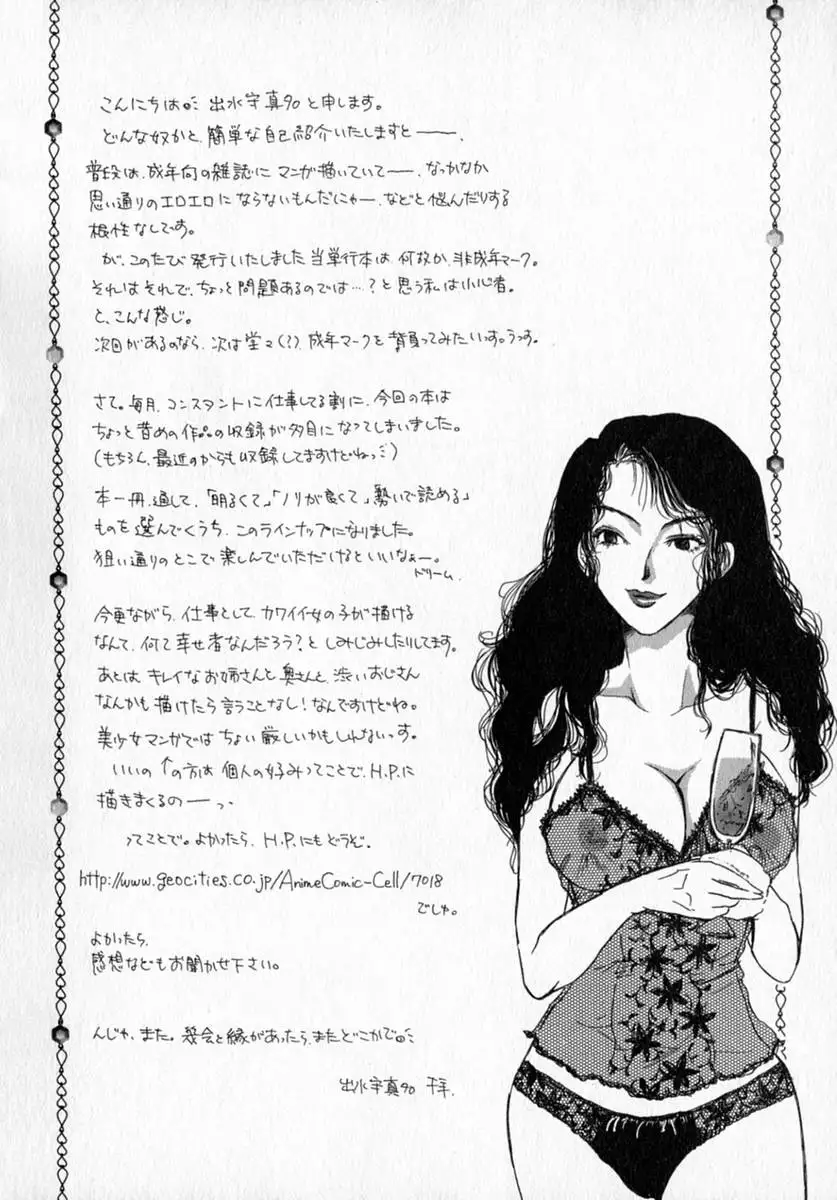 こんにちは。出水宇真90と申します。
どんな奴かと、簡単な自己紹介いたしますと――、
普段は、成年向の雑誌にマンガ描いていて――、なっかなか
思い通りのエロエロにならないもんだにゃー、などと悩んだりする
根性なしです。
が、このたび発行いたしました当単行本は何故か、非成年マーク。
それはそれで、ちょっと問題あるのでは…?と思う私は小心者。
と、こんな感じ。
次回があるのなら、次は堂々(?)、成年マークを背負ってみたいっす。うっす。
さて。毎月、コンスタントに仕事してる割に、今回の本は
ちょっと昔めの作品の収録が多目になってしまいました。
(もちろん、最近のからも収録してますけどねっ)
本一冊、通して、「明るくて」「ノリが良くて」「勢いで読める」
ものを選んでくうち、このラインナップになりました。
狙い通りのとこで楽しんでいただけるといいなぁー。
ドリーム。
今更ながら、仕事として、カワイイ女の子が描ける
なんて、何て幸せ者なんだろう?としみじみしたりしてます。
あとは、キレイなお姉さんと奥さんと、渋いおじさん
なんかも描けたら言うことなし!なんですけどね。
美少女マンガではちょい厳しいかもしれないっす。
いいの↑の方は個人の好みってことで、H.P.に
描きまくるの――っ
ってことで。よかったら、H.P.にもどうぞ。
http://www.geocities.co.jp/AnimeComic-Cell/7018
でしゅ。
よかったら、
感想などもお聞かせ下さい。
んじゃ、また。機会と縁があったら、またどこかで。
出水宇真90 干羊.